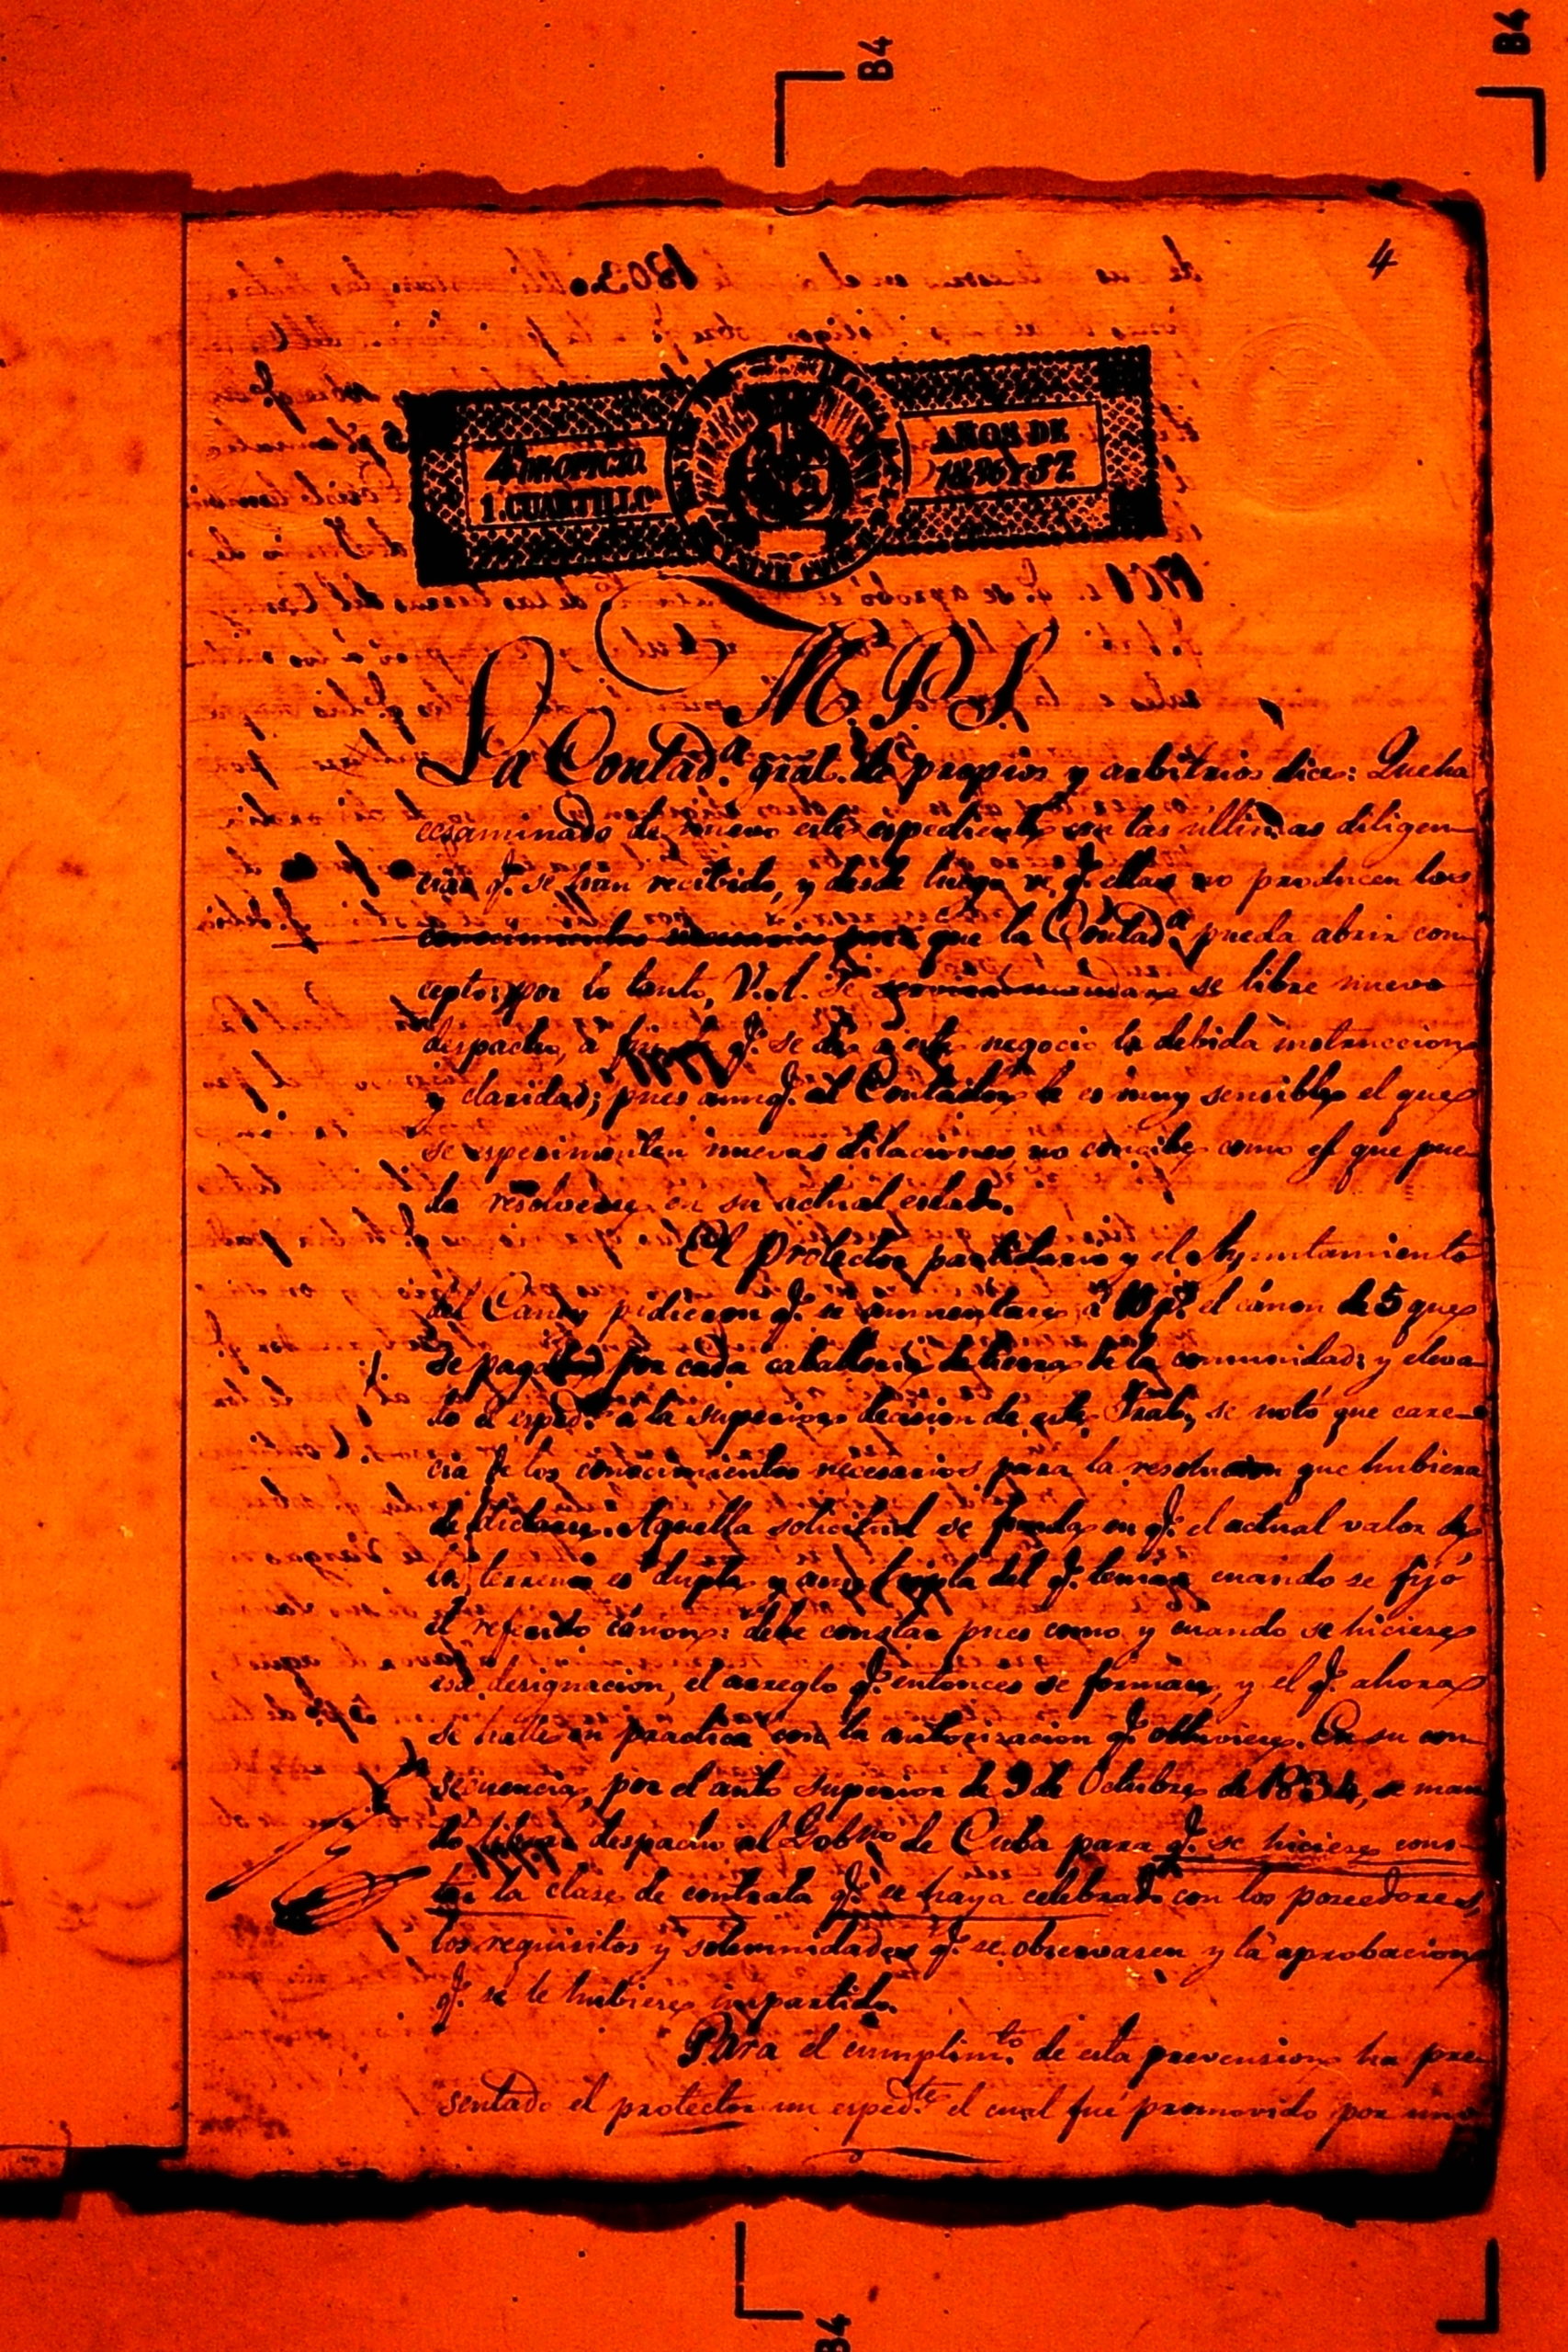 B4
B4
4
4º DE OFICIO
1. CUARTILLO
AÑOS DE
1836 Y 37
M. P. S.
La Contad.ª gral. de propios y arbitrios dice: Que ha
ecsaminado de nuevo este espediente con las ultimas diligen-
cias q.e se han recibido, y desde luego ve q.e ellas no producen los
conocimientos necesarios para que la Contad.ª pueda abrir con-
cepto; por lo tanto, V.A. se servirá mandar se libre nuevo
despacho, á fin de q.e se dé a este negocio la debida instruccion
y claridad; pues aunq.e al Contador le es muy sensible el que
se esperimenten nuevas dilaciones, no concibe como es que pue-
da resolverse en su actual estado.
El Protector partidario y el Ayuntamiento
del Caney pidieron q.e se aumentase á 10 p.s el cánon de 5 que
se pagaba por cada caballeria de tierra de la comunidad; y eleva-
do el esped.te a la superior decision de este Tral, se notó que care-
cia de los conocimientos necesarios para la resolucion que hubiera
de dictarse. Aquella solicitud se funda en q.e el actual valor de
los terrenos es duplo y aun triplo del q.e tenian cuando se fijó
el referido cánon: debe constar pues como y cuando se hiciere
esa designacion, el arreglo q.e entonces se formara, y el q.e ahora
se halle en practica con la autorizacion q.e obtuviere. En su con-
secuencia, por el auto superior de 9 de Octubre de 1834, se man-
dó librar despacho al Gobno de Cuba para q.e se hiciese cons-
tar la clase de contrata q.e se haya celebrado con los poseedores,
los requisitos y solemnidades q.e se observasen y la aprobacion
q.e se le hubiere impartido.
Para el cumplim.to de esta prevension ha pre-
sentado el protector un esped.te el cual fué promovido por uno
B4